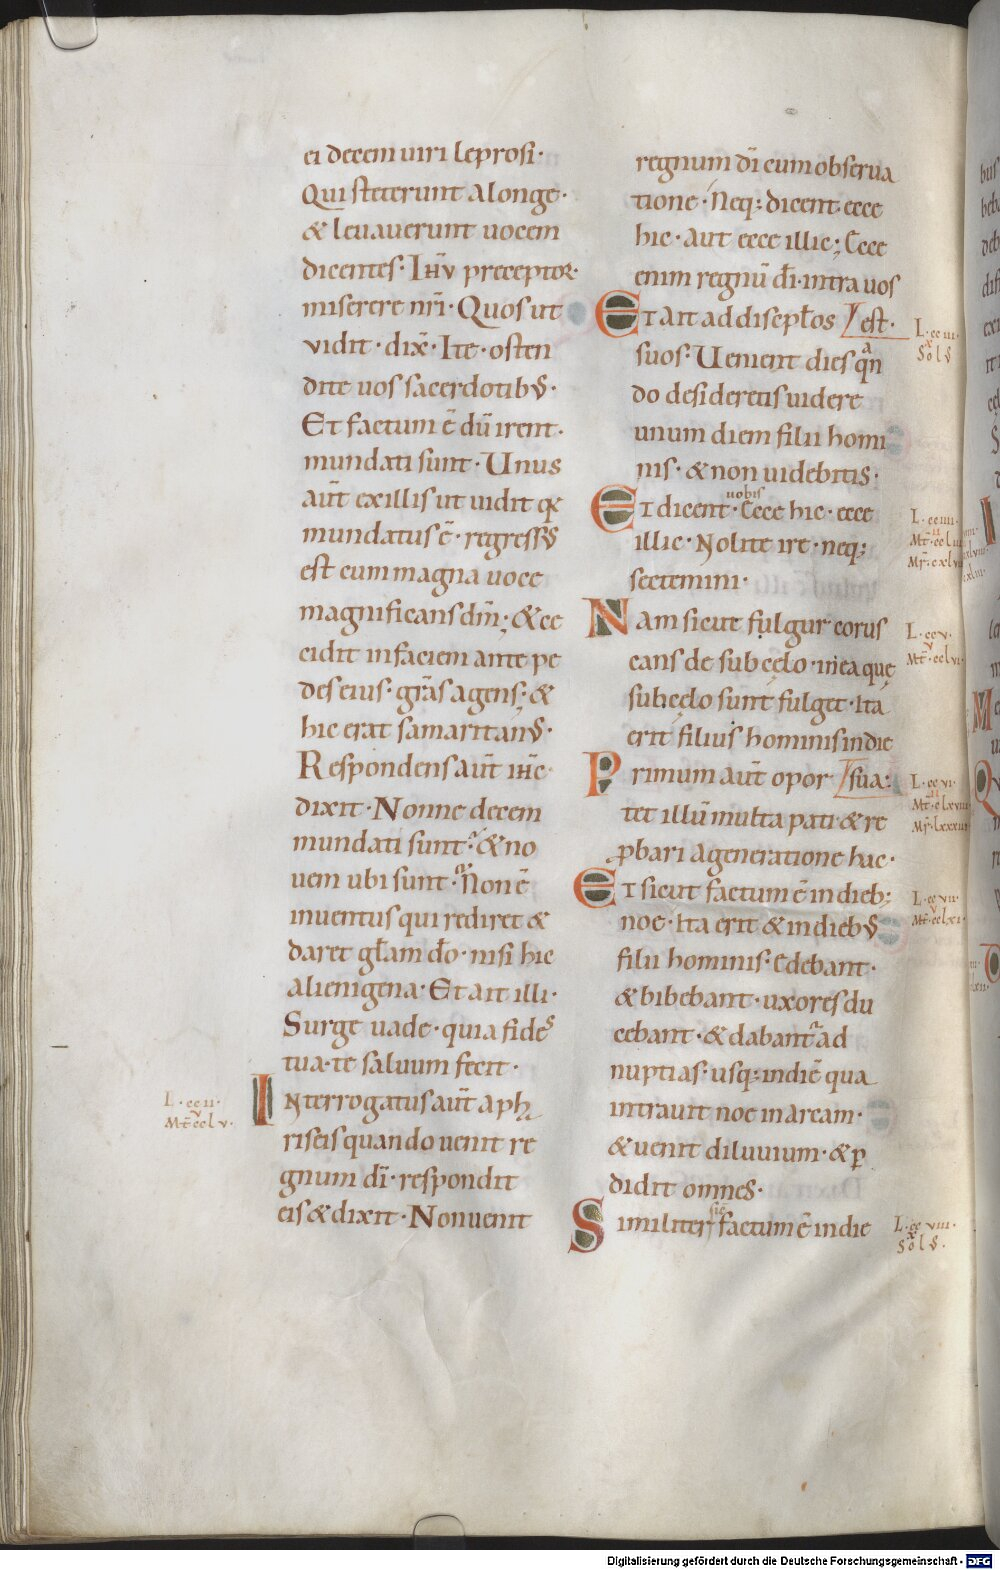 ei decem uiri leprosi·
Qui steterunt alonge·
& leuauerunt uocem
dicentes· Ihū preceptor·
miserere nr̄i· Quos ut
vidit· dix̄· Ite· osten
dite uos sacerdotibuſ·
Et factum ē dū irent·
mundati sunt· Unus
aūt exillis ut uidit qꝛ
mundatus ē· regressuſ
est cum magna uoce
magnificans dm̄; & ce
cidit infaciem ante pe
des eius· gr̄as agens; &
hic erat samaritanuſ·
Respondens aūt ih̄c·
dixit· Nonne decem
mundati sunt· & no
uem ubi sunt· Non ē
inuentus qui rediret &
daret gl̄am d̄o· nisi hic
alienigena· Et ait illi·
Surge uade· quia fides
tua· te saluum fecit·
L·cc ii·
v
Mt̄·cc lv·
Interrogatus aūt aph
riseis quando uenit re
gnum dī· respondit
eis & dixit· Non uenit
regnum dī cum obserua
tione· Neq; dicent· ecce
hic· aut ecce illic; Ecce
enim regnū d̄i· intra uos
Et ait ad discipl̄os est·
suos· Uenient dies qan
do desideretis uidere
unum diem filii homi
nis· & non uidebitis·
L·cc iii·
x
Sol ſ
Et dicent· uobis Ecce hic· ecce
illic· Nolite ire· neq;
sectemini·
L·cc iiii·
Nam sicut fulgur corus
cans de sub cęlo· in ea que
sub cęlo sunt fulget· Ita
erit filius hominis in die
L·cc v·
v
Mt̄·cc lvi·
Primum aūt opor sua:
tet illū multa pati· & re
ꝓbari ageneratione hac·
L·cc vi·
Et sicut factum ē in dieb;
noe· Ita erit & in diebuſ
filii hominis· Edebant·
& bibebant· uxores du
cebant· & dabant ad
nuptias· usq; in diē qua
intrauit noe in arcam·
& uenit diluuium· & ꝑ
didit omnes·
L·cc vii·
v
Mt̄·cc lxi·
Similiter sic factum ē in die
L·cc viii·
x
Sol ſ·
Digitalisierung gefördert durch die Deutsche Forschungsgemeinschaft · DFG